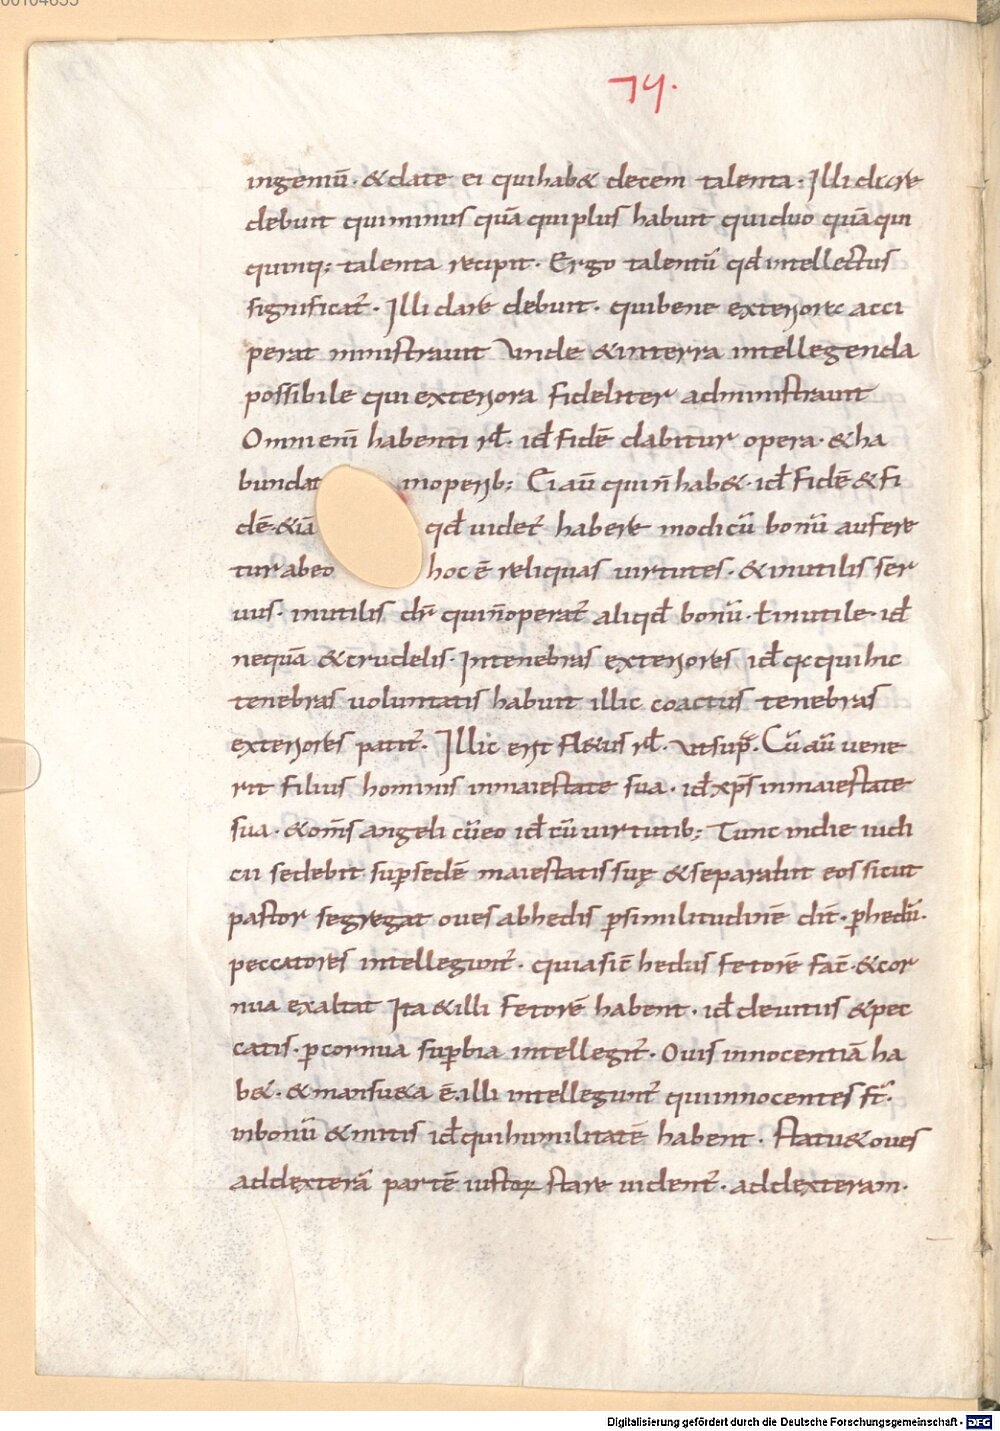 00104633
74.
ingeniū · & date ei qui hab& decem talenta · Illi dicere
debuit qui minus quā qui plus habuit qui duo quā qui
quinq; talenta recipit · Ergo talentū qd intellectus
significat̄ · Illi dare debuit · qui bene exteriore acci
perat ministrauit Vnde & in terra intellegenda
possibile qui exteriora fideliter administrauit
Omni enī habenti rł · id fidē dabitur opera · & ha
bundat in operib; Ei aū qui n̄ hab& · id fidē & fi
dē · & iā qđ uidet̄ habere modicū bonū aufere
tur ab eo hoc ē reliquas uirtutes · & inutilis ser
uus · inutilis dr̄ qui n̄ operat̄ aliqđ bonū · ł inutile · id
nequā & crudelis · In tenebras exteriores id qc qui hic
tenebras uoluntatis habuit illic coactus tenebras
exteriores patit̄ · Illic erit fl&us rł · ut sup̄ · Cū aū uene
rit filius hominis in maiestate sua · id xp̄s in maiestate
sua · & om̄s angeli cū eo id cū uirtutib; Tunc in die iudi
cii sedebit sup sedē maiestatis suę & separabit eos sicut
pastor segregat oues ab hedis p similitudinē dit̄ · p hedū ·
peccatores intellegunt̄ · quia sic̄ hedus fetorē fac̄ · & cor
nua exaltat Ita & illi fetorē habent · id de uitiis & pec
catis · p cornua supbia intellegit̄ · Ouis innocentiā ha
b& · & mansu&a ē · illi intellegunt̄ qui innocentes st̄ ·
in bonū & mitis id qui humilitatē habent · Statu& oues
ad dexterā partē iustoꝝ stare uident̄ · ad dexteram ·
Digitalisierung gefördert durch die Deutsche Forschungsgemeinschaft - DFG